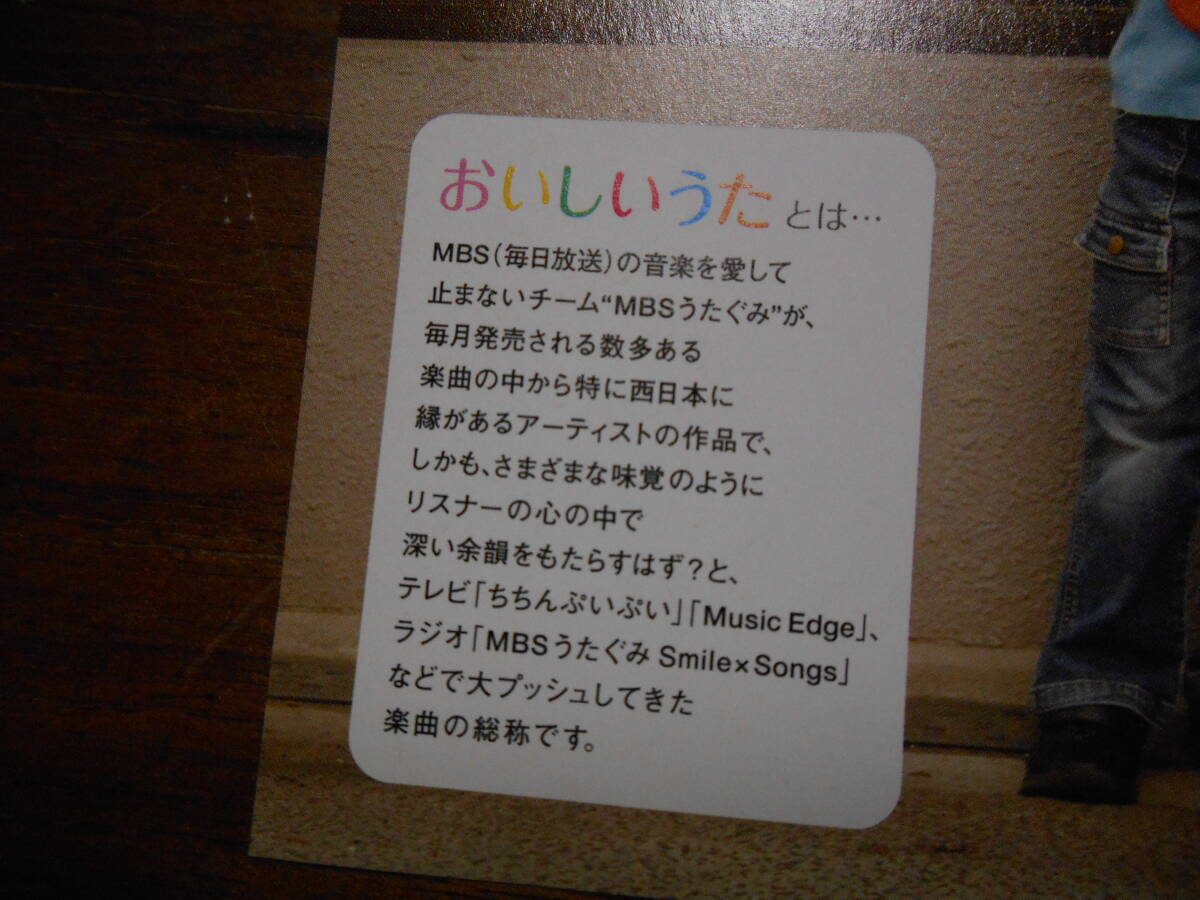 おいしいうたとは…
MBS（毎日放送）の音楽を愛して
止まないチーム“MBSうたぐみ”が、
毎月発売される数多ある
楽曲の中から特に西日本に
縁があるアーティストの作品で、
しかも、さまざまな味覚のように
リスナーの心の中で
深い余韻をもたらすはず？と、
テレビ「ちちんぷいぷい」「Music Edge」、
ラジオ「MBSうたぐみ Smile×Songs」
などで大プッシュしてきた
楽曲の総称です。